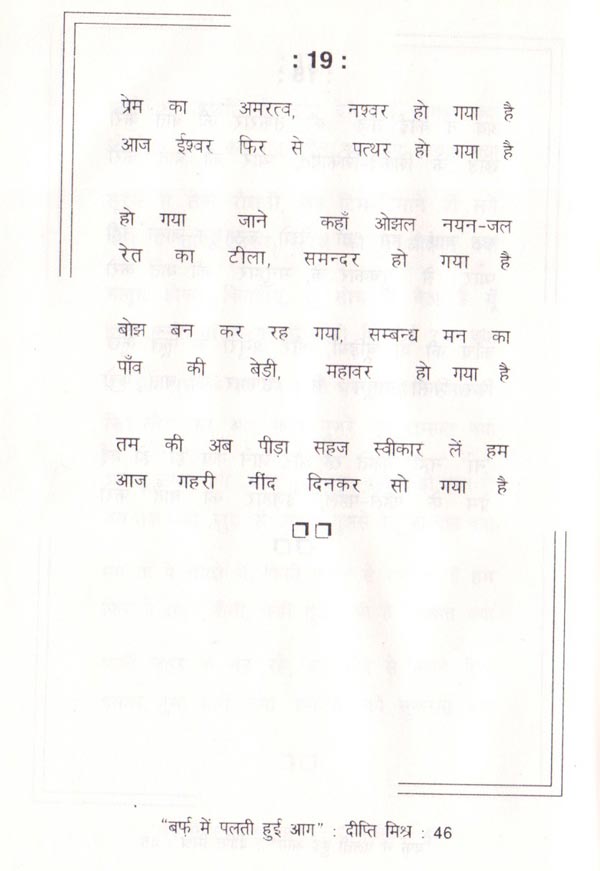 : 19 :
प्रेम का अमरत्व, नश्वर हो गया है
आज ईश्वर फिर से पत्थर हो गया है
हो गया जाने कहाँ ओझल नयन-जल
रेत का टीला, समन्दर हो गया है
बोझ बन कर रह गया, सम्बन्ध मन का
पाँव की बेड़ी, महावर हो गया है
तम की अब पीड़ा सहज स्वीकार लें हम
आज गहरी नींद दिनकर सो गया है
"बर्फ़ में पलती हुई आग" : दीप्ति मिश्र : 46